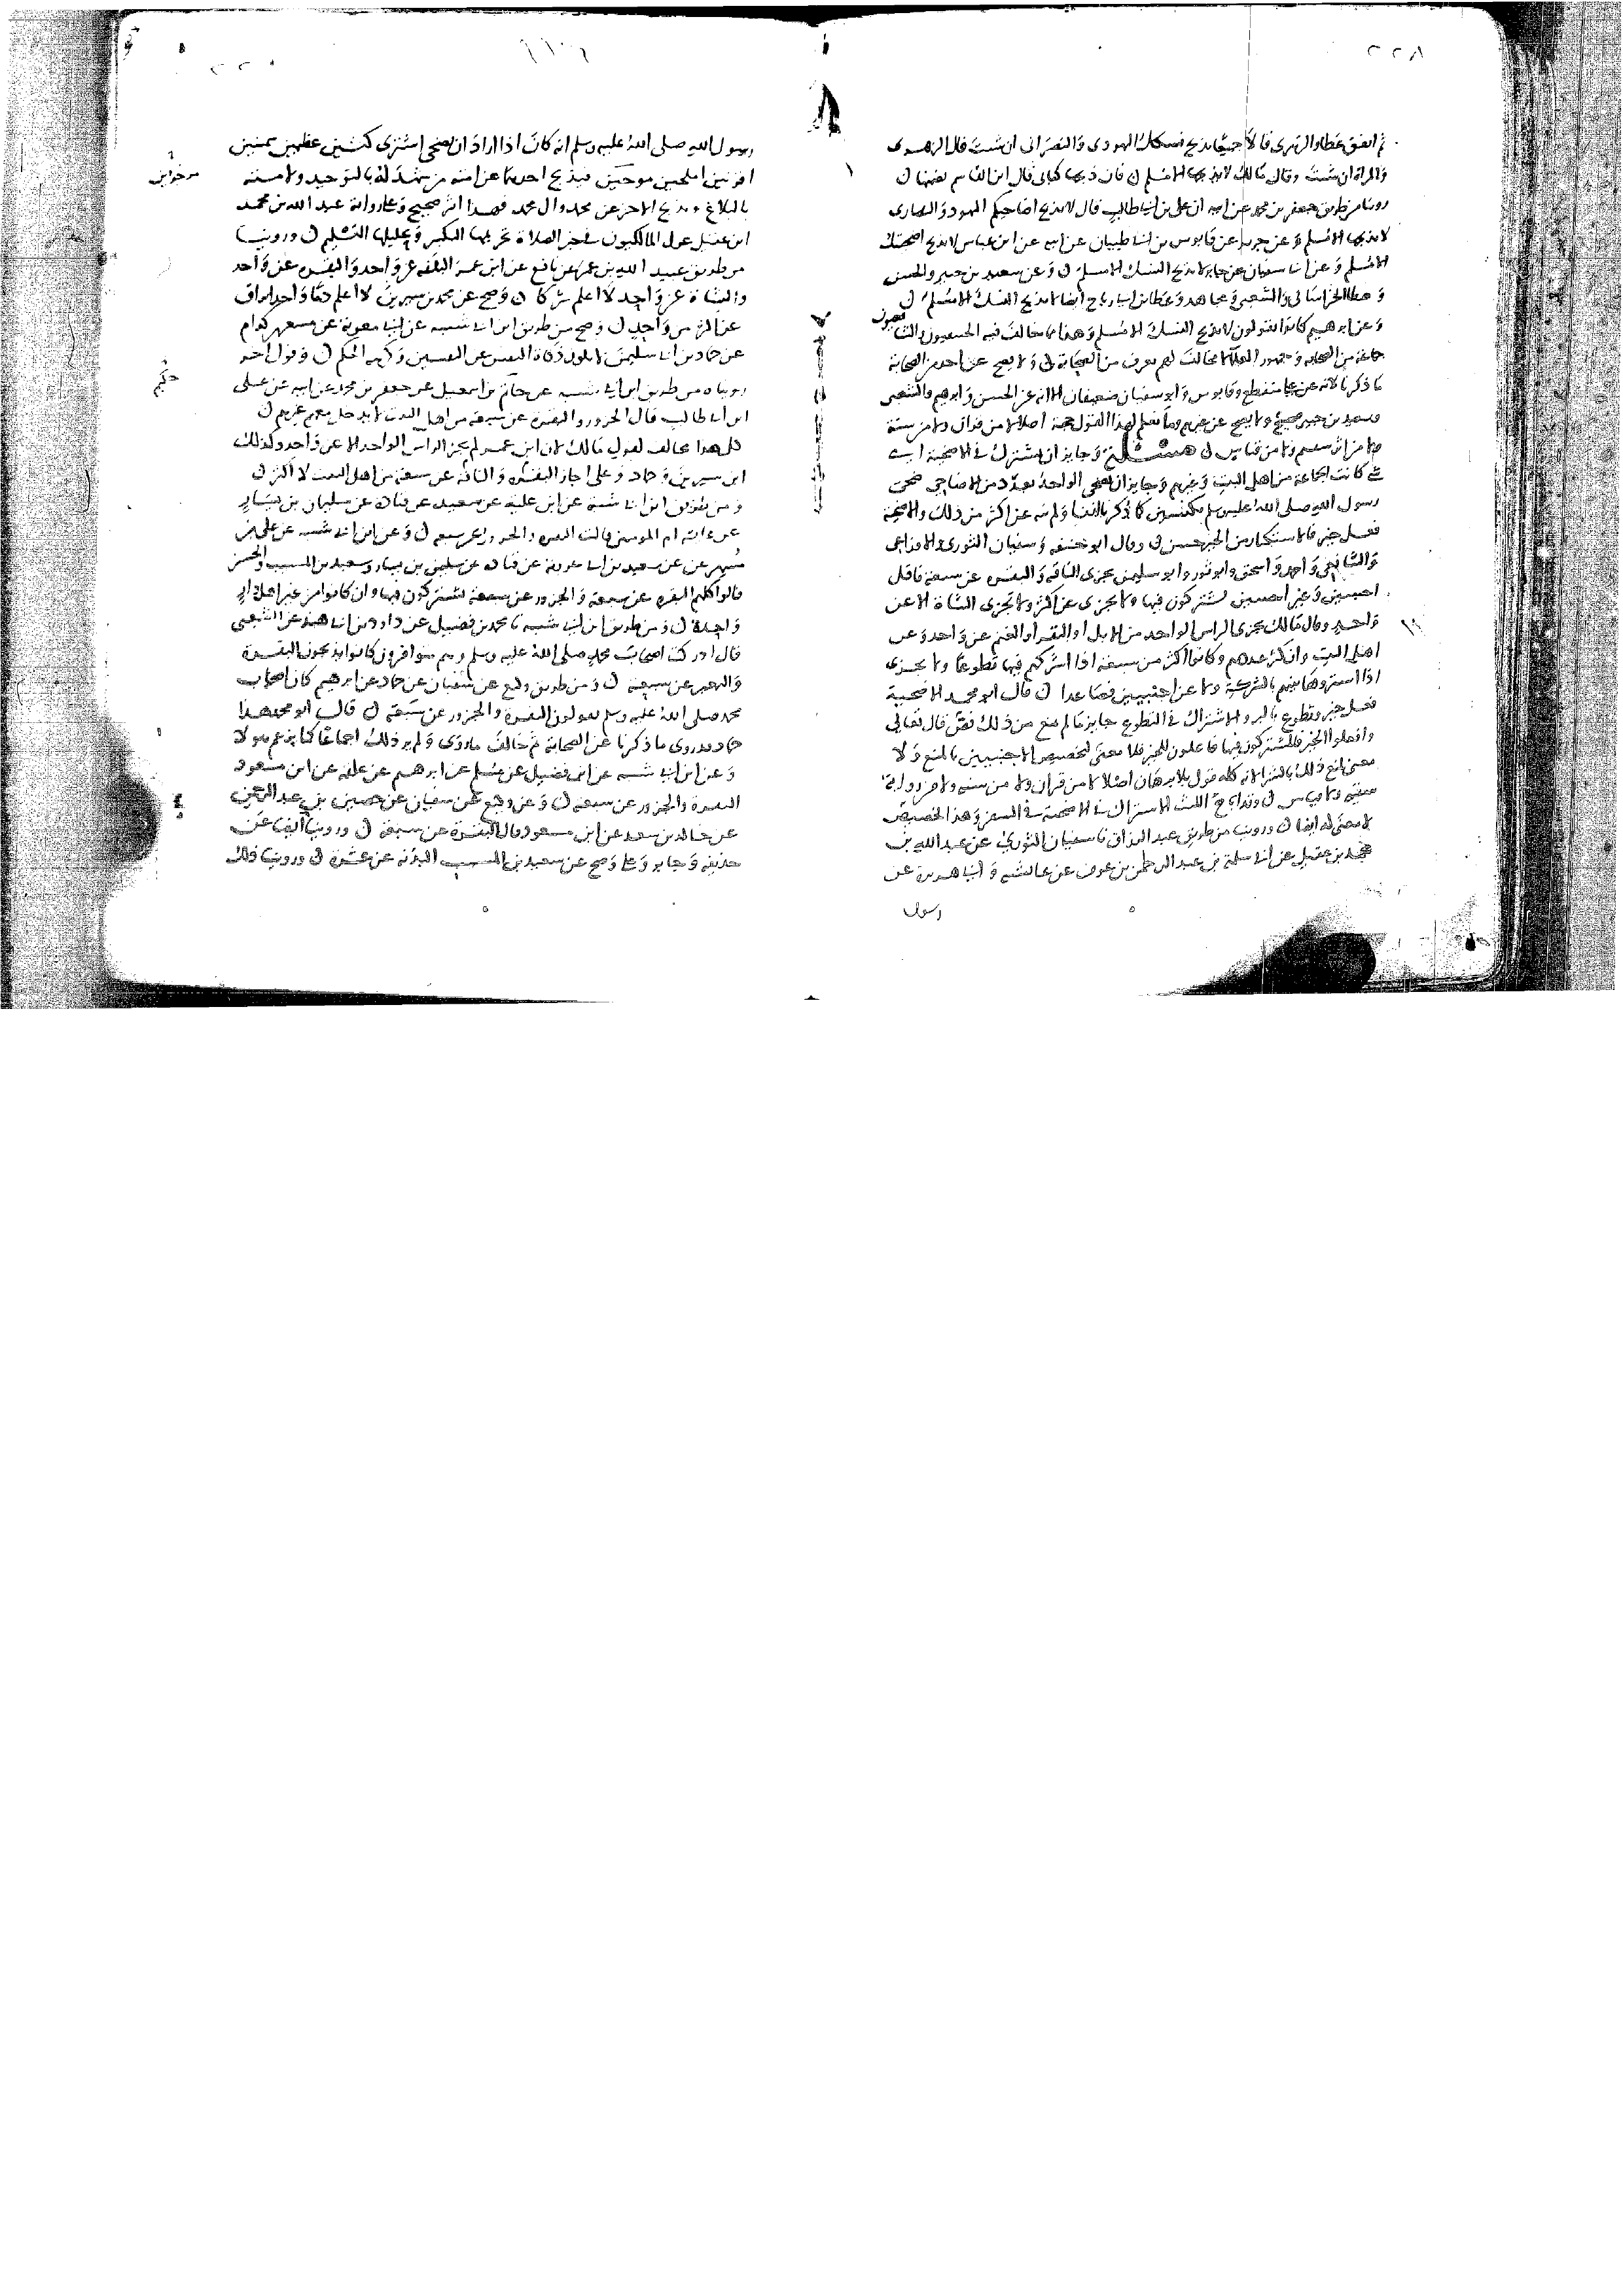 ٢٢٨
ثم اتفق عطا والزهرى قالا جميعا يذبح نسكك اليهودى والنصرانى ان شئت قال الزهرى
والمراة ان شئت وقال مالك لا يذبحها الا مسلم فان ذبحها كتابى قال ابن القاسم يضمنها
روينا من طريق جعفر بن محمد عن ابيه ان على بن ابى طالب قال لا يذبح اضاحيكم اليهود والنصارى
لا يذبحها الا مسلم وعن جرير عن قابوس بن ابى ظبيان عن ابيه عن ابن عباس لا يذبح اضحيتك
الا مسلم وعن ابى سفيان عن جابر لا يذبح النسك الا مسلم وعن سعيد بن جبير والحسن
وعطا الخراسانى والشعبى ومجاهد وعطا بن ابى رباح ايضا لا يذبح النسك الا مسلم
وعن ابرهيم كانوا يقولون لا يذبح النسك الا مسلم وهذا مما خالف فيه الحنيفيون والشافعيون
جماعة من الصحابة وجمهور العلما لا مخالف لهم يعرف من الصحابة ولا يصح عن احد من الصحابة
ما ذكرنا لانه عن على منقطع وقابوس وابو سفيان ضعيفان الا انه عن الحسن وابرهيم والشعبى
وسعيد بن جبير صحيح ولا يصح عن غيرهم وما نعلم لهذا القول حجة اصلا لا من قران ولا من سنة
ولا من اثر سقيم ولا من قياس مسئلة وجايز ان يشترك فى الاضحية اى
شى كانت الجماعة من اهل البيت وغيرهم وجايز ان يضحى الواحد بعدد من الاضاحى ضحى
رسول الله صلى الله عليه وسلم بكبشين كما ذكر بالنا ولم ينه عن اكثر من ذلك والاضحية
فعل خير فالاستكثار من الخير حسن وقال ابو حنيفه وسفيان الثورى والاوزاعى
والشافعى واحمد واسحق وابو ثور وابو سليمن تجزى الناقة والبقرة عن سبعة فاقل
اجنبيين وغير اجنبيين يشتركون فيها ولا تجزى عن اكثر ولا تجزى الشاة الا عن
واحد وقال مالك يجزى الراس الواحد من الابل او البقر او الغنم عن واحد وعن
اهل البيت وان كثر عددهم وكانوا اكثر من سبعة اذا اشركهم فيها تطوعا ولا تجزى
اذا اشتروها بينهم بالشركة ولا عن اجنبيين فصاعدا قال ابو محمد الاضحية
فعل خير وتطوع بالبر والاشتراك فى التطوع جايز ما لم يمنع من ذلك نص قال تعالى
وافعلوا الخير فالمشتركون فيها فاعلون للخير فلا معنى لتخصيص الاجنبيين بالمنع ولا
معنى لمنع ذلك بالشرا لانه كله قول بلا برهان اصلا لا من قران ولا من سنة ولا من رواية
سقيمة ولا قياس وقد اباح الليث الاشتراك فى الاضحية فى السفر وهذا تخصيص
لا معنى له ايضا وروينا من طريق عبد الرزاق نا سفيان الثورى عن عبد الله بن
محمد بن عقيل عن ابى سلمة بن عبد الرحمن بن عوف عن عائشة وابى هريرة عن
رسول
رسول الله صلى الله عليه وسلم انه كان اذا اراد ان يضحى اشترى كبشين عظيمين سمينين
اقرنين املحين موجئين فيذبح احدهما عن امته من شهد لله بالتوحيد ولامنته
بالبلاغ ويذبح الاخر عن محمد وال محمد فهذا اثر صحيح وعلى رواية عبد الله بن محمد
ابن عقيل عول المالكيون فى خبر الصلاة تحريمها التكبير وتحليلها التسليم وروينا
من طريق عبيد الله بن عمر عن نافع عن ابن عمر البدنة عن واحد والبقرة عن واحد
والشاة عن واحد لا اعلم شركا وصح عن محمد بن سيرين لا اعلم دما واحدا يراق
عن اكثر من واحد وصح من طريق ابن ابى شيبه عن ابى معوية عن مسعر بن كدام
عن حماد بن ابى سليمن لا يكون ذكاة النفس عن النفسين وكرهه الحكم وقول اخر
رويناه من طريق ابن ابى شيبه عن حاتم بن اسمعيل عن جعفر بن محمد عن ابيه عن على
ابن ابى طالب قال الجزور والبقرة عن سبعة من اهل البيت لا يدخل معهم غيرهم
كل هذا مخالف لقول مالك لان ابن عمر لم يجز الراس الواحد الا عن واحد وكذلك
ابن سيرين وحماد وعلى اجاز البقرة والناقة عن سبعة من اهل البيت لا اكثر
ومن طريق ابن ابى شيبة عن ابن علية عن سعيد عن قتادة عن سليمان بن يسار
عن عائشة ام المومنين قالت البقرة والجزور عن سبعة وعن ابن ابى شيبه عن على بن
مسهر عن سعيد بن ابى عروبة عن قتادة عن سليمن بن يسار وسعيد بن المسيب والحسن
قالوا كلهم البقرة عن سبعة والجزور عن سبعة يشتركون فيها وان كانوا من غير اهل دار
واحدة ومن طريق ابن ابى شيبه نا محمد بن فضيل عن داود بن ابى هند عن الشعبى
قال ادركت اصحاب محمد صلى الله عليه وسلم وهم متوافرون كانوا يذبحون البقرة
والبعير عن سبعة ومن طريق وكيع عن سفيان عن حماد عن ابرهيم كان اصحاب
محمد صلى الله عليه وسلم يقولون البقرة والجزور عن سبعة قال ابو محمد هذا
حماد قد روى ما ذكرنا عن الصحابة ثم خالف ما روى ولم ير ذلك اجماعا كما يزعم هولا
وعن ابن ابى شيبه عن ابن فضيل عن مسلم عن ابرهيم عن علقمه عن ابن مسعود
البقرة والجزور عن سبعة وعن وكيع عن سفيان عن حصين بن عبد الرحمن
عن خالد بن سعد عن ابى مسعود قال البقرة عن سبعة وروينا ايضا عن
حذيفة وجابر وعلى وصح عن سعيد بن المسيب البدنة عن عشرة وروينا ذلك